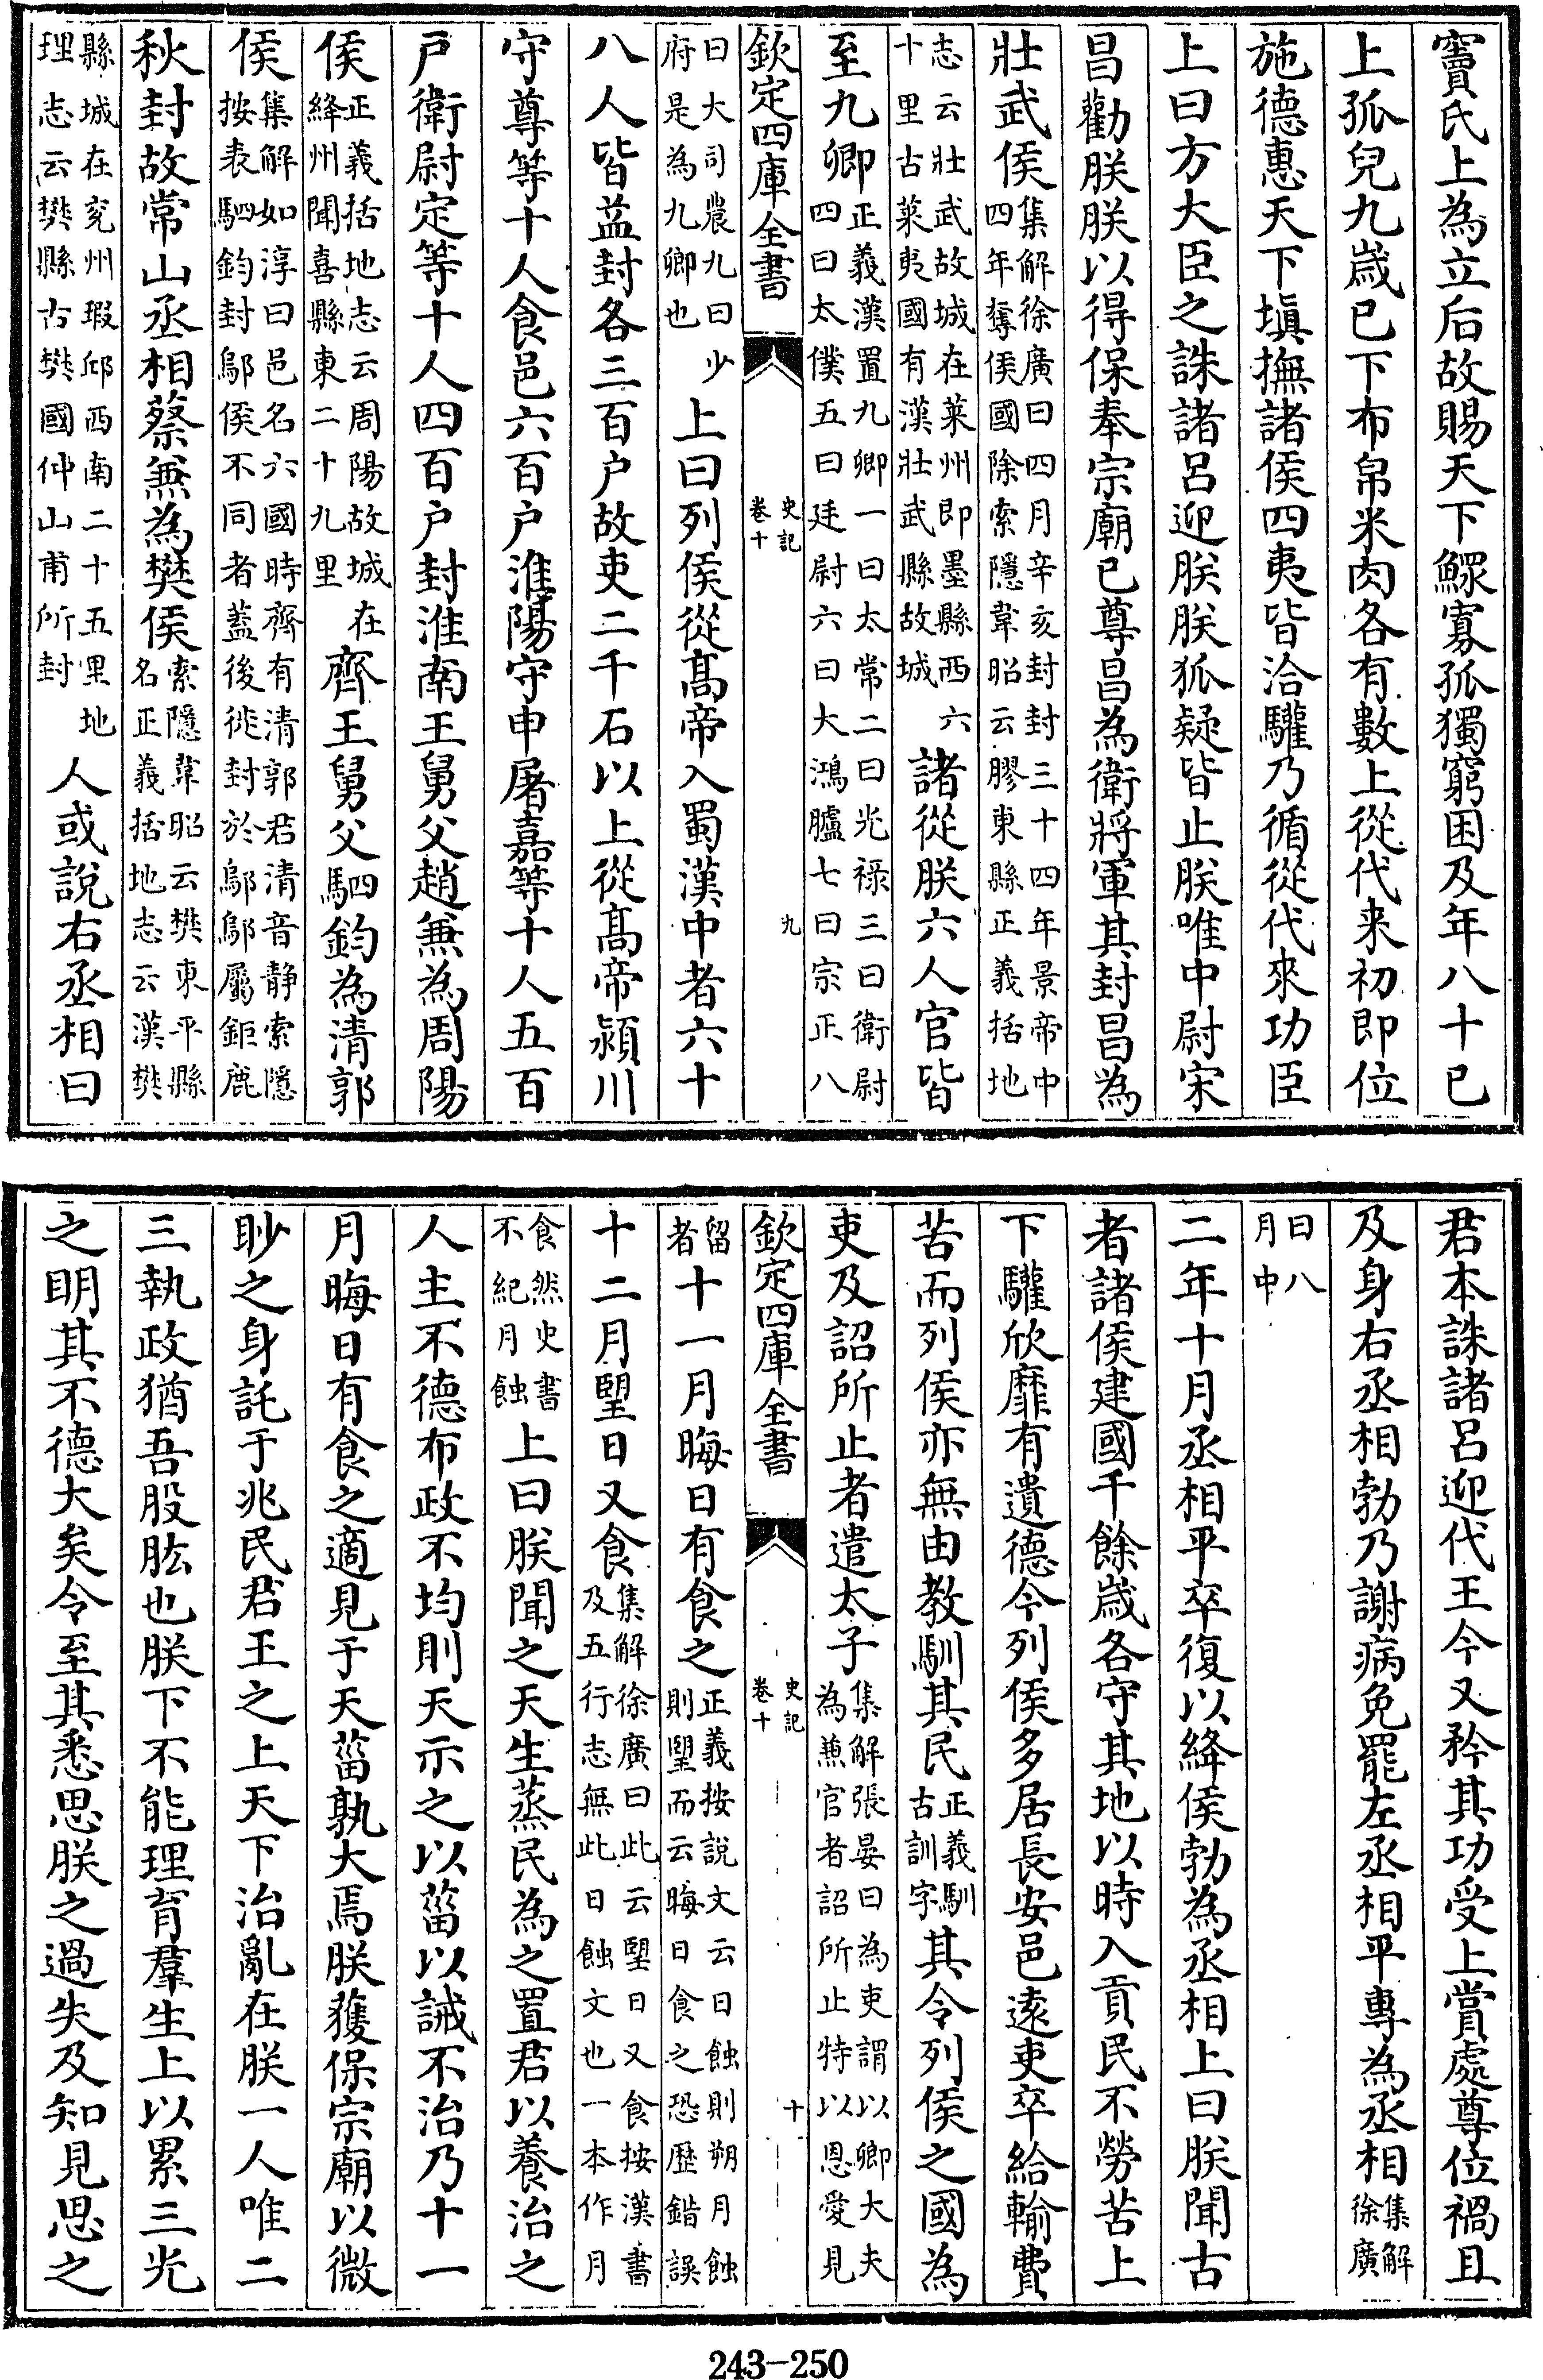 竇氏上為立后故賜天下鰥寡孤獨窮困及年八十已
上孤兒九歲已下布帛米肉各有數上從代来初即位
施德惠天下塡撫諸侯四夷皆洽驩乃循從代來功臣
上曰方大臣之誅諸呂迎朕朕狐疑皆止朕唯中尉宋
昌勸朕朕以得保奉宗廟已尊昌為衛將軍其封昌為
壯武侯集解徐廣曰四月辛亥封封三十四年景帝中四年奪侯國除索隱韋昭云膠東縣正義括地
志云壯武故城在萊州即墨縣西六十里古萊夷國有漢壯武縣故城諸從朕六人官皆
至九卿正義漢置九卿一曰太常二曰光祿三曰衛尉四曰太僕五曰廷尉六曰大鴻臚七曰宗正八
欽定四庫全書
史記
卷十
九
曰大司農九曰少府是為九卿也上曰列侯從髙帝入蜀漢中者六十
八人皆益封各三百户故吏二千石以上從髙帝潁川
守尊等十人食邑六百户淮陽守申屠嘉等十人五百
户衛尉定等十人四百户封淮南王舅父趙兼為周陽
侯正義括地志云周陽故城在絳州聞喜縣東二十九里齊王舅父駟鈞為清郭
侯集解如淳曰邑名六國時齊有清郭君清音静索隱按表駟鈞封鄔侯不同者蓋後徙封於鄔鄔屬鉅鹿
秋封故常山丞相蔡兼為樊侯索隱韋昭云樊東平縣名正義括地志云漢樊
縣城在兖州瑕邱西南二十五里地理志云樊縣古樊國仲山甫所封人或說右丞相曰
君本誅諸呂迎代王今又矜其功受上賞處尊位禍且
及身右丞相勃乃謝病免罷左丞相平專為丞相集解徐廣
曰八月中
二年十月丞相平卒復以絳侯勃為丞相上曰朕聞古
者諸侯建國千餘歲各守其地以時入貢民不勞苦上
下驩欣靡有遺德今列侯多居長安邑遠吏卒給輸費
苦而列侯亦無由教馴其民正義馴古訓字其令列侯之國為
吏及詔所止者遣太子集解張晏曰為吏謂以卿大夫為兼官者詔所止特以恩愛見
欽定四庫全書
史記
卷十
十
留者十一月晦日有食之正義按說文云日蝕則朔月蝕則望而云晦日食之恐歷錯誤
十二月望日又食集解徐廣曰此云望日又食按漢書及五行志無此日蝕文也一本作月
食然史書不紀月蝕上曰朕聞之天生蒸民為之置君以養治之
人主不德布政不均則天示之以菑以誡不治乃十一
月晦日有食之適見于天菑孰大焉朕獲保宗廟以微
眇之身託于兆民君王之上天下治亂在朕一人唯二
三執政猶吾股肱也朕下不能理育羣生上以累三光
之明其不德大矣令至其悉思朕之過失及知見思之
243-250